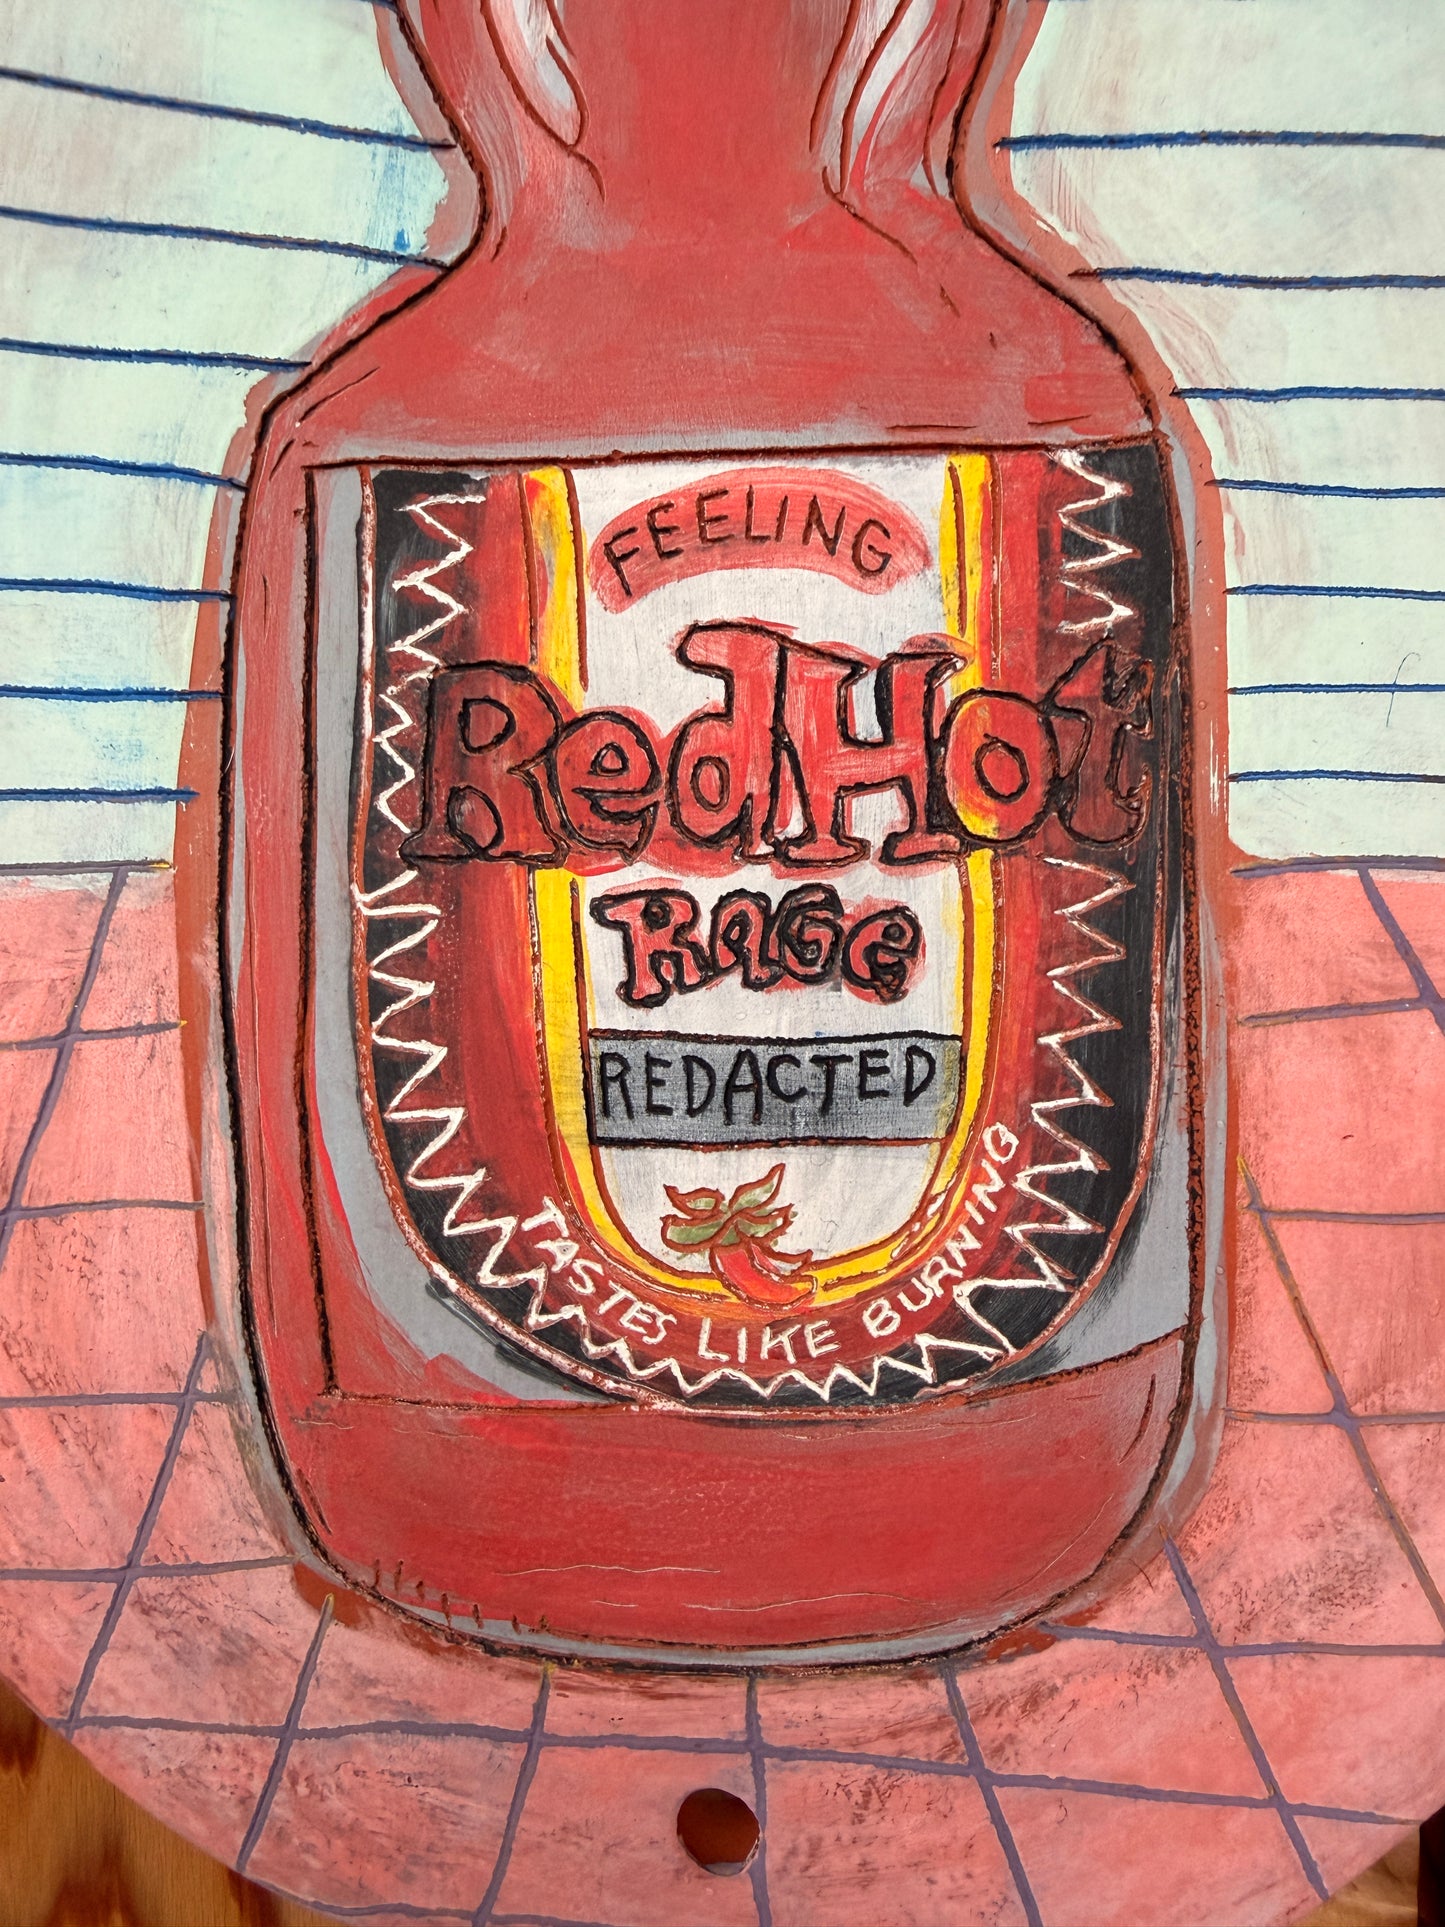 FEELING
RedHot
RAGe
REDACTED
TASTES LIKE BURNING